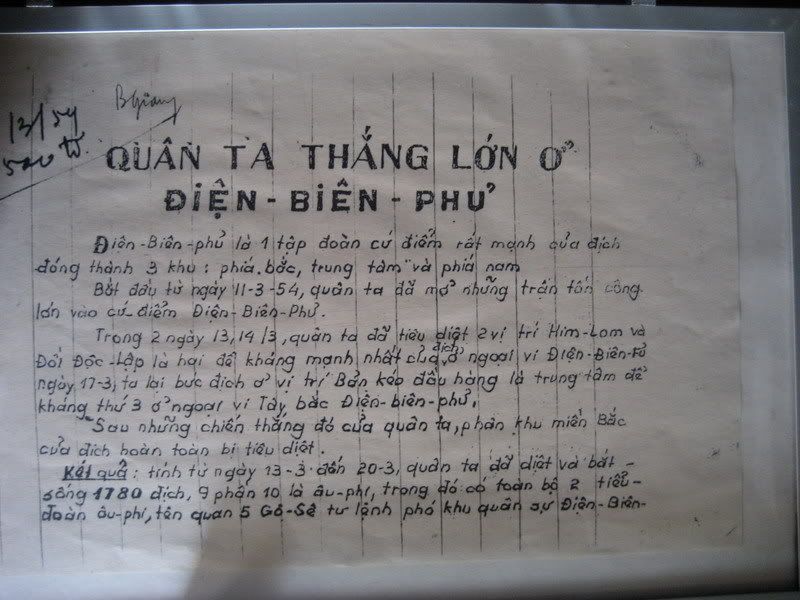 13/54
BGiang
sau từ
QUÂN TA THẮNG LỚN Ở
ĐIỆN - BIÊN - PHỦ
Điện-Biên-phủ là 1 tập đoàn cứ điểm rất mạnh của địch
đóng thành 3 khu : phiá bắc, trung tâm và phiá nam
Bắt đầu từ ngày 11-3-54, quân ta đã mở những trận tấn công
lớn vào cứ điểm Điện-Biên-Phủ.
Trong 2 ngày 13,14/3, quân ta đã tiêu diệt 2 vị trí Him-Lam và
Đồi Độc-Lập là hai đề kháng mạnh nhất của địch ở ngoại vi Điện-Biên-từ
ngày 17-3, ta lại bức địch ở vị trí Bản kéo đầu hàng là trung tâm đề
kháng thứ 3 ở ngoại vi Tây, bắc Điện-biên-phủ.
Sau những chiến thắng đó của quân ta, phân khu miền Bắc
của địch hoàn toàn bị tiêu diệt.
Kết quả : tính từ ngày 13-3 đến 20-3, quân ta đã diệt và bắt -
sống 1780 địch, 9 phần 10 là âu-phi, trong đó có toàn bộ 2 tiểu-
đoàn âu-phi, tên quan 5 Gô-Sê tư lệnh phó khu quân sự Điện-Biên-